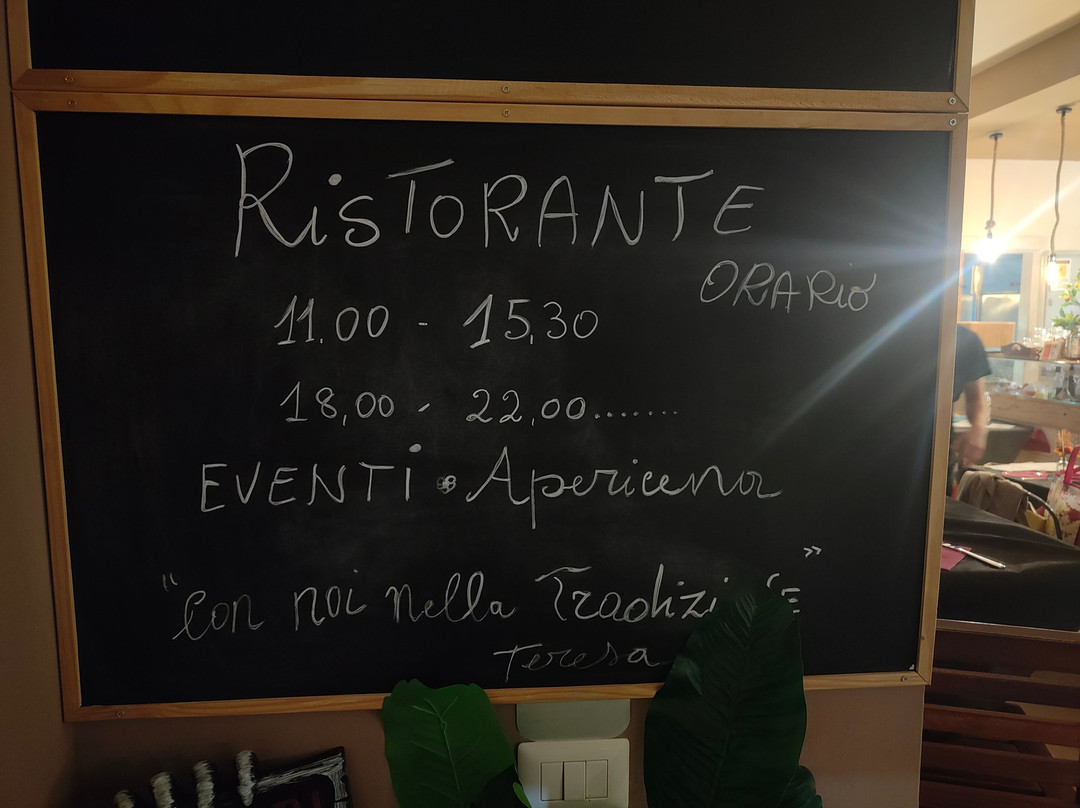 RisTORANTE
ORARiO
11.00 - 15,30
18,00 - 22,00.......
EVENTi • Apericena
"Con noi nella
Teresa